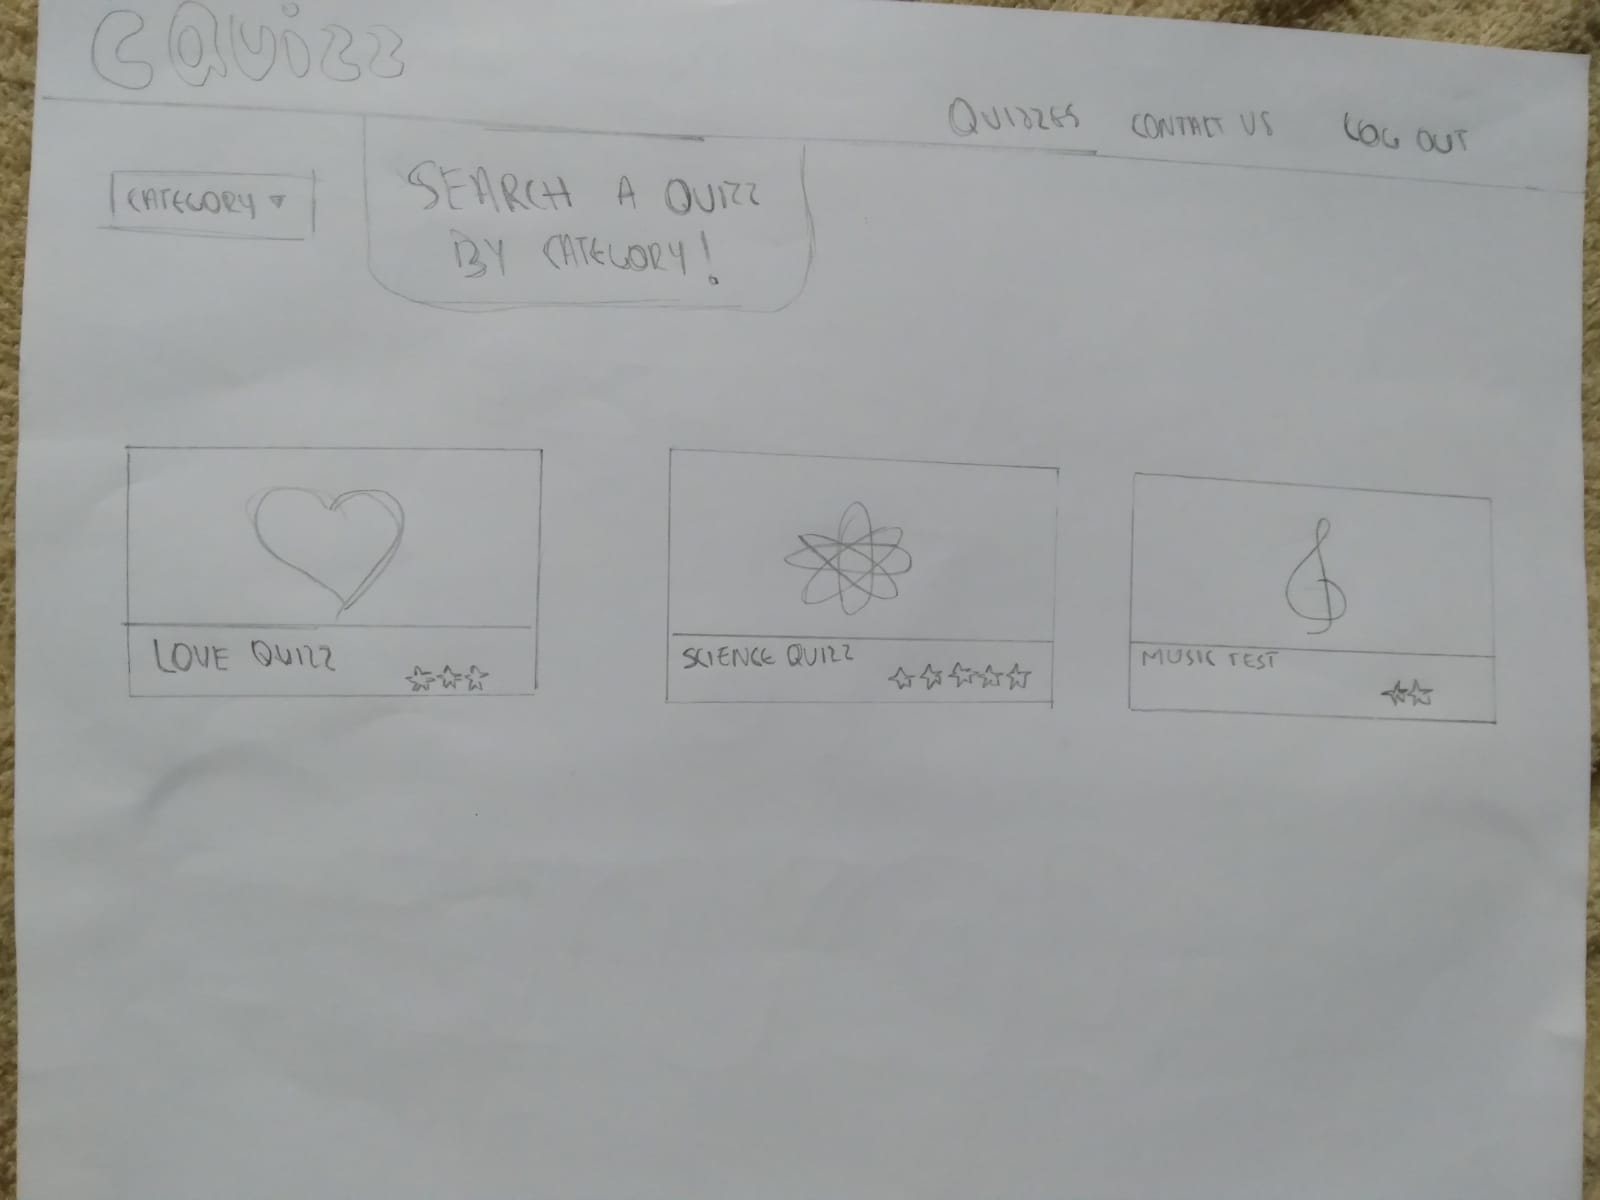 CQUIZZ
QUIZZES CONTACT US LOG OUT
CATEGORY
SEARCH A QUIZZ
BY CATEGORY!
LOVE QUIZZ
SCIENCE QUIZZ
MUSIC TEST